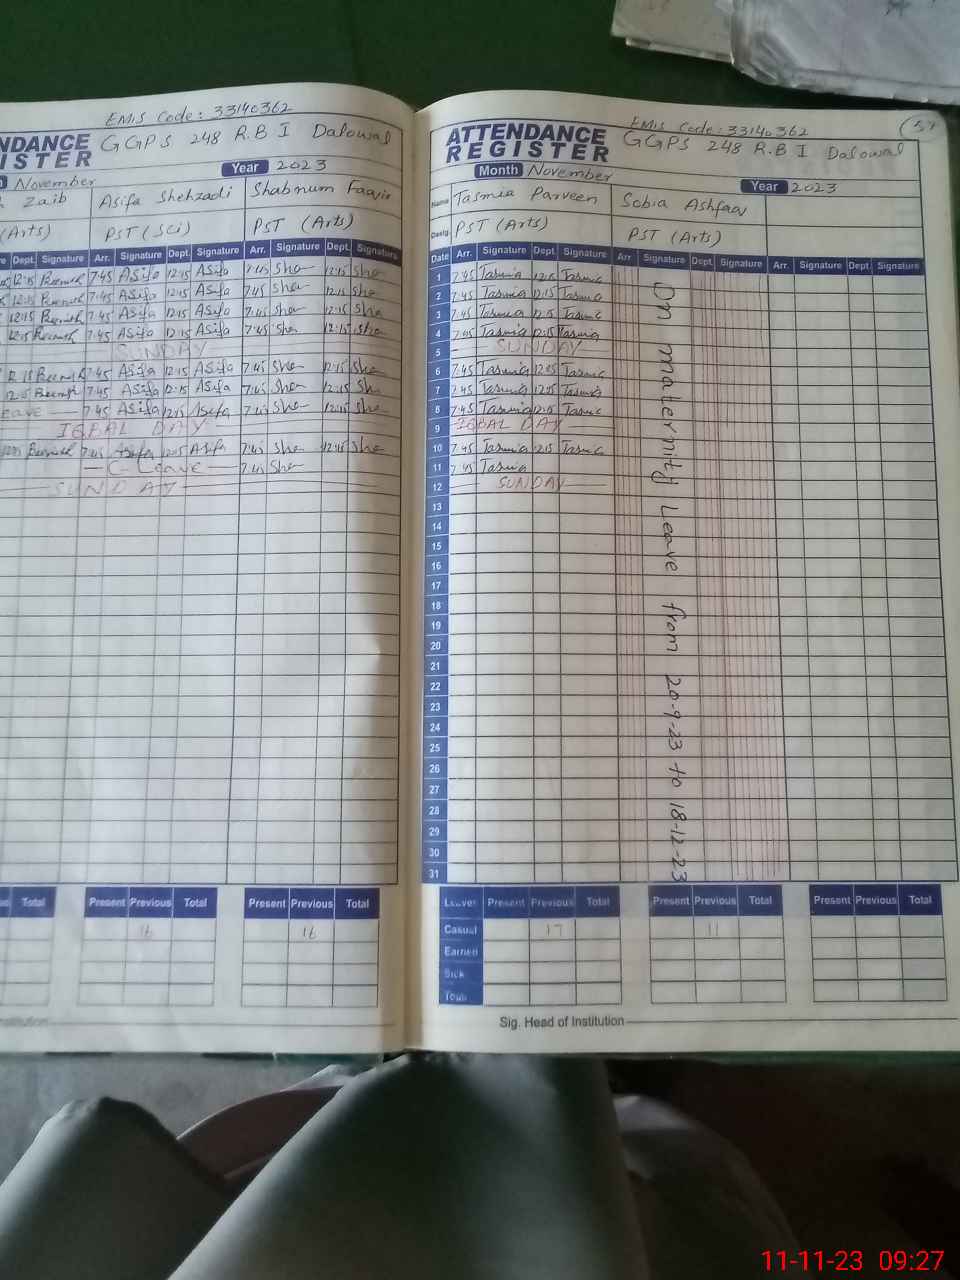 EMIS Code: 33140362
NDANCE
ISTER
GGPS 248 R.B I Dalowal
Year 2023
November
Zaib
Asifa Shehzadi
Shabnum Faqir
(Arts)
PST (Sci)
PST (Arts)
Dept. Signature Arr. Signature Dept. Signature Arr. Signature Dept. Signature
7:45 Asifa 12:15 Asifa 7:45 Sha 12:15 Sha
12:15 7:45 Asifa 12:15 Asifa 7:45 Sha 12:15 Sha
12:15 7:45 Asifa 12:15 Asifa 7:45 Sha 12:15 Sha
12:15 7:45 Asifa 12:15 Asifa 7:45 Sha 12:15 Sha
SUNDAY
12:15 7:45 Asifa 12:15 Asifa 7:45 Sha 12:15 Sha
7:45 Asifa 12:15 Asifa 7:45 Sha 12:15 Sha
eave 7:45 Asifa 12:15 Asifa 7:45 Sha 12:15 Sha
IQBAL DAY
7:45 Asifa 12:15 Asifa 7:45 Sha 12:15 Sha
C-Leave 7:45 Sha
SUNDAY
Total Present Previous Total Present Previous Total
16 16
EMIS Code: 33140362
57
ATTENDANCE
REGISTER
GGPS 248 R.B I Dalowal
Month November
Year 2023
Name Tasmia Parveen Sobia Ashfaq
Desig. PST (Arts) PST (Arts)
Date Arr. Signature Dept. Signature Arr Signature Dept. Signature Arr. Signature Dept Signature
1 7:45 Tasmia 12:15 Tasmia
2 7:45 Tasmia 12:15 Tasmia
3 7:45 Tasmia 12:15 Tasmia
4 7:45 Tasmia 12:15 Tasmia
5 SUNDAY
6 7:45 Tasmia 12:15 Tasmia
7 7:45 Tasmia 12:15 Tasmia
8 7:45 Tasmia 12:15 Tasmia
9 IQBAL DAY
10 7:45 Tasmia 12:15 Tasmia
11 7:45 Tasmia
12 SUNDAY
13
14
15
16
17
18
19
20
21
22
23
24
25
26
27
28
29
30
31
On maternity Leave from 20-9-23 to 18-12-23
Leaves Present Previous Total Present Previous Total Present Previous Total
Casual 17 11
Earned
Sick
Total
Sig. Head of Institution
11-11-23 09:27